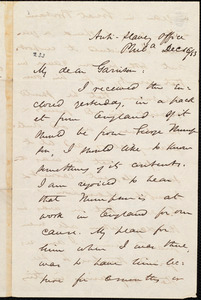 Anti-Slavery Office
Phila Dec 16/53
My dear Garrison:
I received the in-
closed yesterday, in a pack-
et from England. If it
should be from George Thomp-
son, I should like to know
something of its contents.
I am rejoiced to hear
that Thompson is at
work in England for our
cause. My plan for
him when I was there,
was to have him be-
for months, in